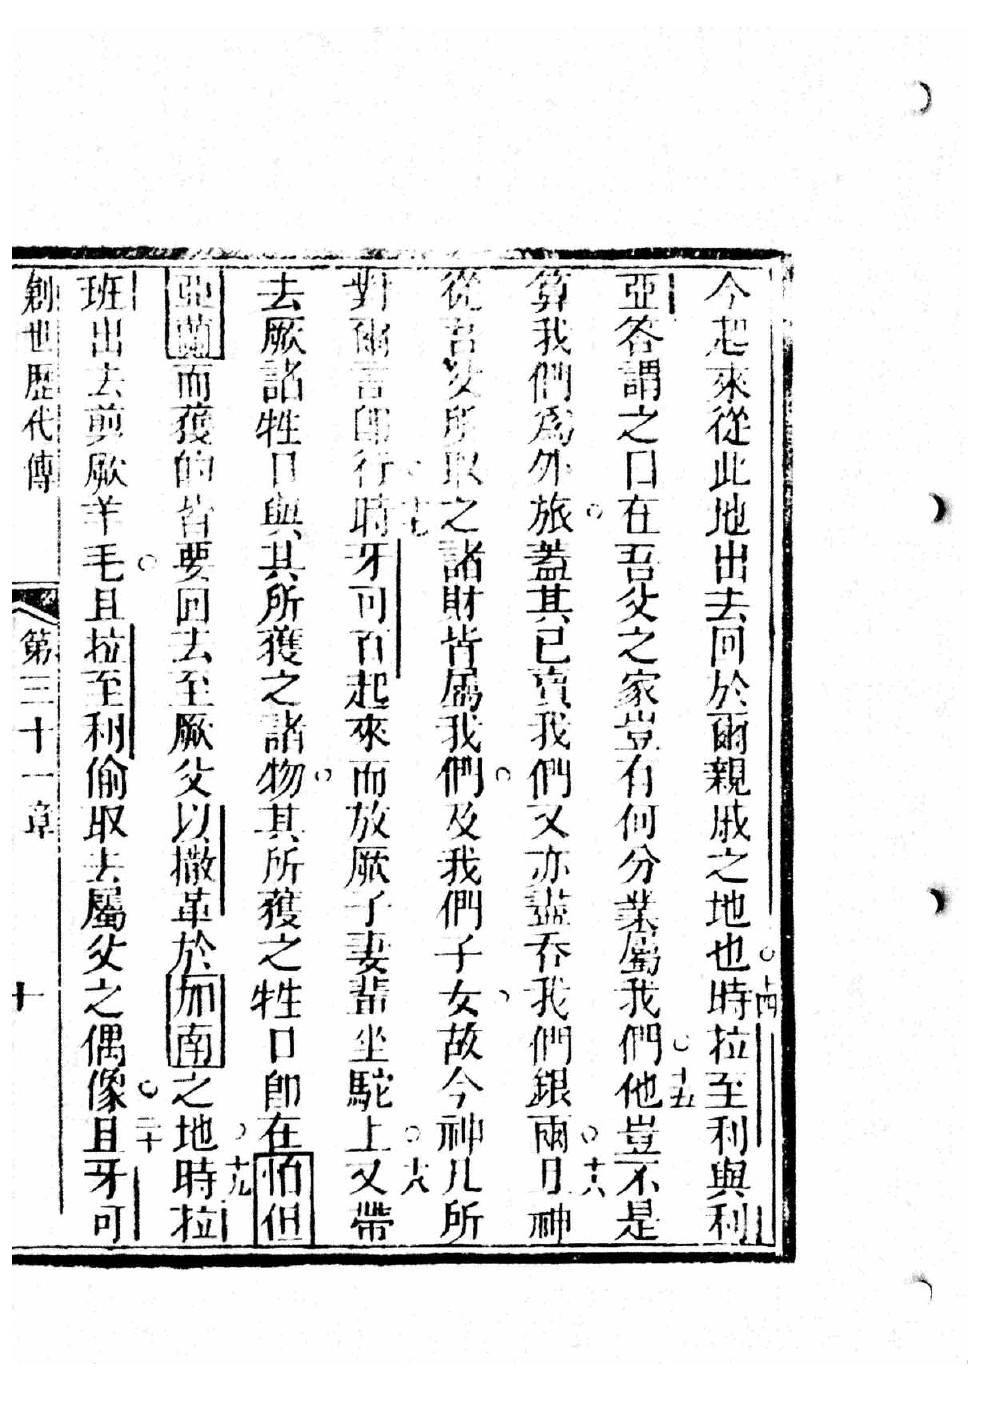 今起來從此地出去回於爾親戚之地也○十四時拉至利與利
亞答謂之曰在吾父之家豈有何分業屬我們○十五他豈不是
算我們爲外旅○蓋其已賣我們又亦盡吞我們銀兩○十六且神
從吾父所取之諸財皆屬我們○及我們子女、故今神凡所
對爾言卽行○十七時牙可百起來而放厥子妻輩坐駝上○十八又帶
去厥諸牲口與其所獲之諸物○其所獲之牲口卽在怕但
亞蘭而獲的皆要回去至厥父以撒革於加南之地○十九時拉
班出去剪厥羊毛○且拉至利偷取去屬父之偶像○二十且牙可
創世歷代傳 第三十一章 十